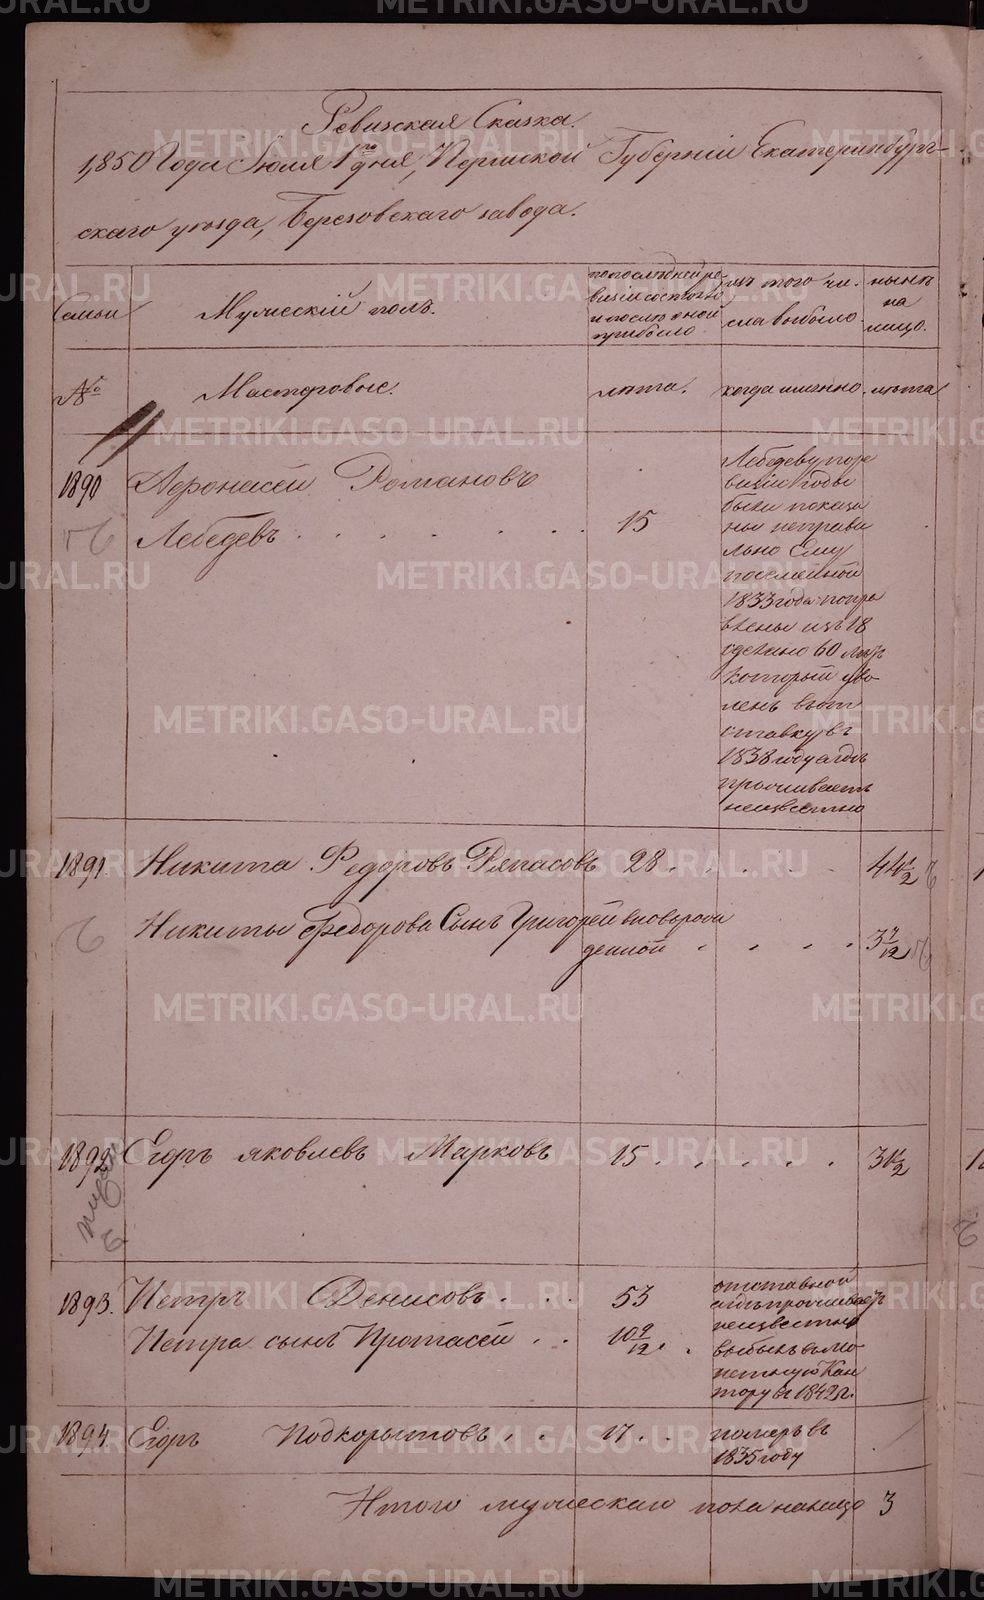 Ревизская Сказка.
1850 Года Июля 1го дня, Пермской Губернiи Екатеринбург-
скаго уѣзда, Березовскаго завода.
Семьи
Мужескiй полъ.
по послѣдней ре
визiи состояло
и послѣ оной
прибыло.
изъ того чи.
сла выбыло.
нынѣ
на
лицо.
№
Мастеровые.
лѣта.
когда именно.
лѣта
1890
Афонасей Романовъ
Лебедевъ
15
Лебедеву по ре
визiи годы
были показа
ны неправи
льно Ему
посемейной
1833 года попра
влены изъ 18
сделано 60 лѣтъ
который уво-
ленъ въ от
ставку въ
1838 году а гдѣ
проживаетъ
неизвестно
1891.
Никита Федоровъ Репасовъ 28
44 1/2
Никиты Федорова Сынъ Григорей вновь рож
денной
3 7/12
1892
Егоръ Яковлевъ Марковъ 15
31 1/2
1893.
Петръ Денисовъ
53
отставной
гдѣ проживаетъ
неизвестно
Петра сынъ Протасей
10 9/12
выбылъ въ Мо-
нетную Кан
тору въ 1842 г.
1894.
Егоръ Подкорытовъ
17
померъ въ
1835 году
Итого мужескаго пола налицо 3
METRIKI.GASO-URAL.RU